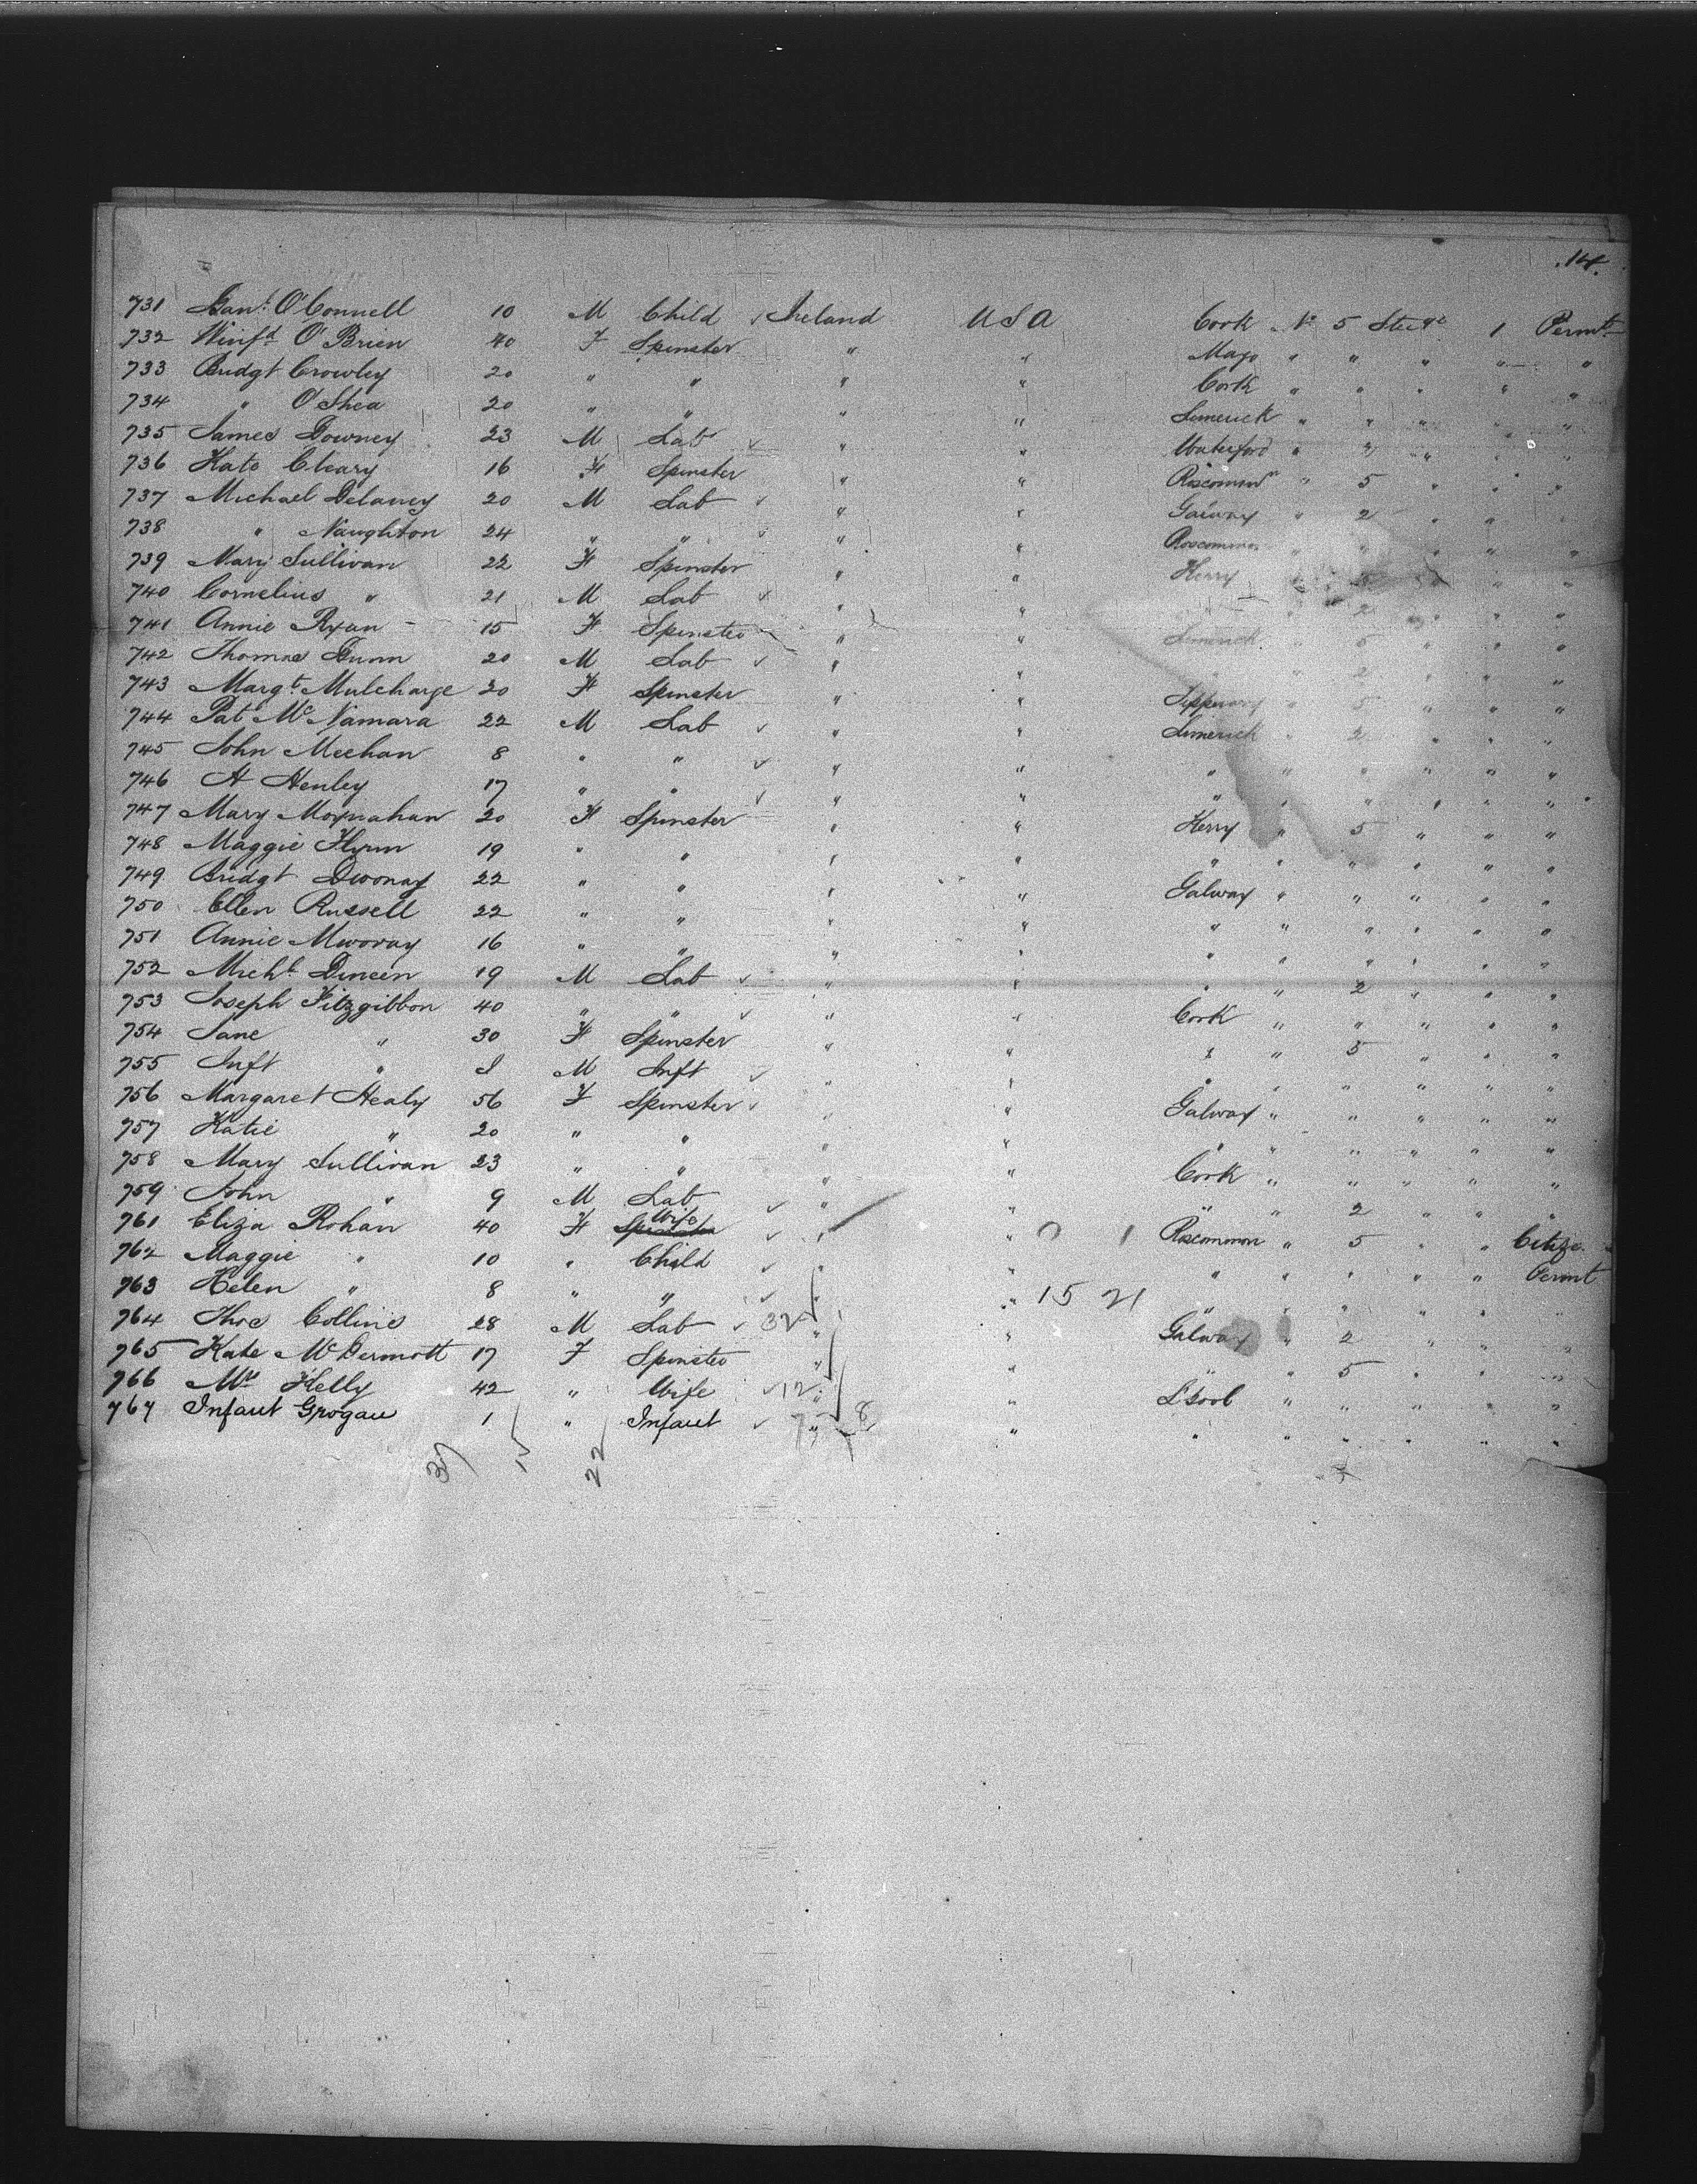 14.
731 Dan.l O'Connell 10 M Child ✓ Ireland USA Cork No 5 Steige 1 Permt
732 Winifd O'Brien 40 F Spinster " " Mayo " " " " "
733 Bridgt Crowley 20 " " " " Cork " " " " "
734 " O'Shea 20 " " " " Limerick " " " " "
735 James Downey 23 M Lab ✓ " " Waterford " " " " "
736 Kate Cleary 16 F Spinster " " Roscommn " 5 " " "
737 Michael Delaney 20 M Lab ✓ " " Galway " 2 " " "
738 " Naughton 24 " " ✓ " " Roscommon " " " " "
739 Mary Sullivan 22 F Spinster " " Kerry " 5 " " "
740 Cornelius " 21 M Lab ✓ " " " " 2 " " "
741 Annie Ryan 15 F Spinster " " Limerick " 5 " " "
742 Thomas Dunn 20 M Lab ✓ " " " " 2 " " "
743 Margt 20 F Spinster " " Tipperary " 5 " " "
744 Pat McNamara 22 M Lab ✓ " " Limerick " 2 " " "
745 John Meehan 8 " " ✓ " " " " " " " "
746 H Henley 17 " " ✓ " " " " " " " "
747 Mary Moynahan 20 F Spinster " " Kerry " 5 " " "
748 Maggie Flynn 19 " " " " " " " " " "
749 Bridgt 22 " " " " Galway " " " " "
750 Ellen Russell 22 " " " " " " " " " "
751 Annie 16 " " " " " " " " " "
752 Michl Dineen 19 M Lab ✓ " " " " 2 " " "
753 Joseph Fitzgibbon 40 " " ✓ " " Cork " " " " "
754 Jane " 30 F Spinster " " " " 5 " " "
755 Inft " I M Inft ✓ " " " " " " " "
756 Margaret Healy 56 F Spinster ✓ " " Galway " " " " "
757 Katie " 20 " " " " " " " " " "
758 Mary Sullivan 23 " " " " Cork " " " " "
759 John " 9 M Lab ✓ " " " " 2 " " "
761 Eliza Rohan 40 F Spinster Wife ✓ " " 0 1 Roscommon " 5 " " Citize
762 Maggie " 10 " Child ✓ " " " " " " " Permt
763 Helen " 8 " " ✓ " " 15 21 " " " " " "
764 Thos Collins 28 M Lab ✓ 32 " " Galway " 2 " " "
765 Kate McDermott 17 F Spinster " " " " 5 " " "
766 Mrs Kelly 42 " Wife ✓ 12 " " L'pool " " " " "
767 Infant Grogan 1 " Infant ✓ 7 " 8 " " " " " " "
15 22